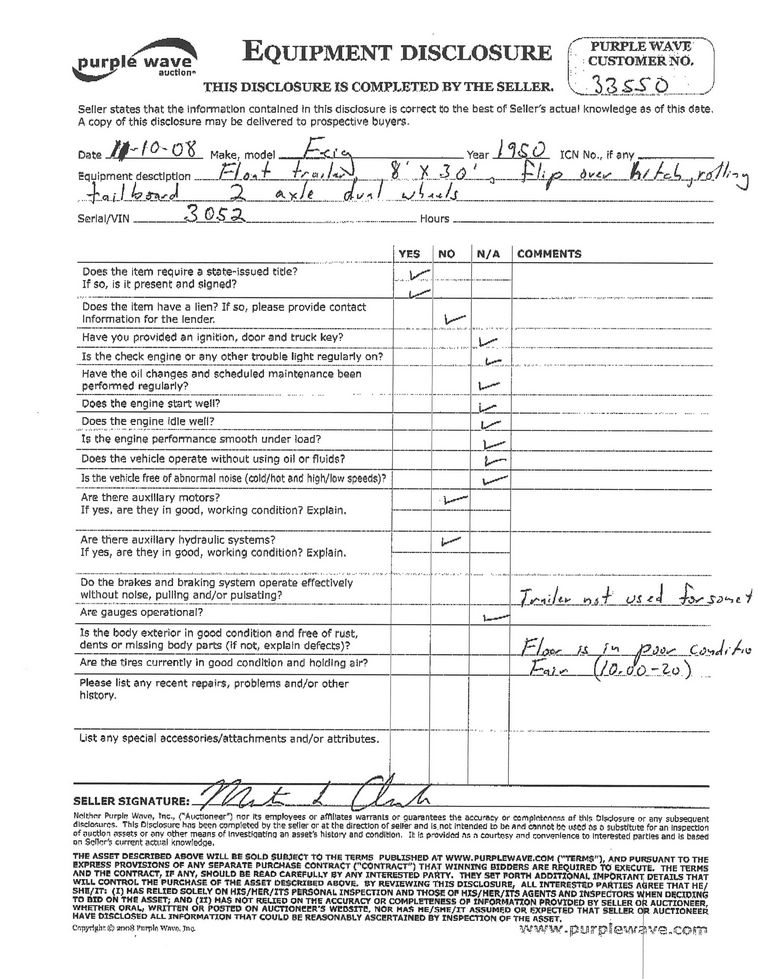 purple wave
auction
EQUIPMENT DISCLOSURE
PURPLE WAVE
CUSTOMER NO.
33550
THIS DISCLOSURE IS COMPLETED BY THE SELLER.
Seller states that the information contained in this disclosure is correct to the best of Seller's actual knowledge as of this date.
A copy of this disclosure may be delivered to prospective buyers.
Date 11-10-08 Make, model Year 1950 ICN No., if any
Equipment desctiption Float trailer, 8' X 30', flip over hitch, rolling
tailboard 2 axle dual wheels
Serial/VIN 3052 Hours
YES NO N/A COMMENTS
Does the item require a state-issued title?
If so, is it present and signed?
Does the item have a lien? If so, please provide contact
information for the lender.
Have you provided an ignition, door and truck key?
Is the check engine or any other trouble light regularly on?
Have the oil changes and scheduled maintenance been
performed regularly?
Does the engine start well?
Does the engine idle well?
Is the engine performance smooth under load?
Does the vehicle operate without using oil or fluids?
Is the vehicle free of abnormal noise (cold/hot and high/low speeds)?
Are there auxiliary motors?
If yes, are they in good, working condition? Explain.
Are there auxiliary hydraulic systems?
If yes, are they in good, working condition? Explain.
Do the brakes and braking system operate effectively
without noise, pulling and/or pulsating? Trailer not used for somet
Are gauges operational?
Is the body exterior in good condition and free of rust,
dents or missing body parts (if not, explain defects)? Floor is in poor conditio
Are the tires currently in good condition and holding air? Fair (10.00-20)
Please list any recent repairs, problems and/or other
history.
List any special accessories/attachments and/or attributes.
SELLER SIGNATURE:
Neither Purple Wave, Inc., ("Auctioneer") nor its employees or affiliates warrants or guarantees the accuracy or completeness of this Disclosure or any subsequent
disclosures. This Disclosure has been completed by the seller or at the direction of seller and is not intended to be and cannot be used as a substitute for an inspection
of auction assets or any other means of investigating an asset's history and condition. It is provided as a courtesy and convenience to interested parties and is based
on Seller's current actual knowledge.
THE ASSET DESCRIBED ABOVE WILL BE SOLD SUBJECT TO THE TERMS PUBLISHED AT WWW.PURPLEWAVE.COM ("TERMS"), AND PURSUANT TO THE
EXPRESS PROVISIONS OF ANY SEPARATE PURCHASE CONTRACT ("CONTRACT") THAT WINNING BIDDERS ARE REQUIRED TO EXECUTE. THE TERMS
AND THE CONTRACT, IF ANY, SHOULD BE READ CAREFULLY BY ANY INTERESTED PARTY. THEY SET FORTH ADDITIONAL IMPORTANT DETAILS THAT
WILL CONTROL THE PURCHASE OF THE ASSET DESCRIBED ABOVE. BY REVIEWING THIS DISCLOSURE, ALL INTERESTED PARTIES AGREE THAT HE/
SHE/IT: (I) HAS RELIED SOLELY ON HIS/HER/ITS PERSONAL INSPECTION AND THOSE OF HIS/HER/ITS AGENTS AND INSPECTORS WHEN DECIDING
TO BID ON THE ASSET; AND (II) HAS NOT RELIED ON THE ACCURACY OR COMPLETENESS OF INFORMATION PROVIDED BY SELLER OR AUCTIONEER,
WHETHER ORAL, WRITTEN OR POSTED ON AUCTIONEER'S WEBSITE, NOR HAS HE/SHE/IT ASSUMED OR EXPECTED THAT SELLER OR AUCTIONEER
HAVE DISCLOSED ALL INFORMATION THAT COULD BE REASONABLY ASCERTAINED BY INSPECTION OF THE ASSET.
Copyright © 2008 Purple Wave, Inc.
www.purplewave.com